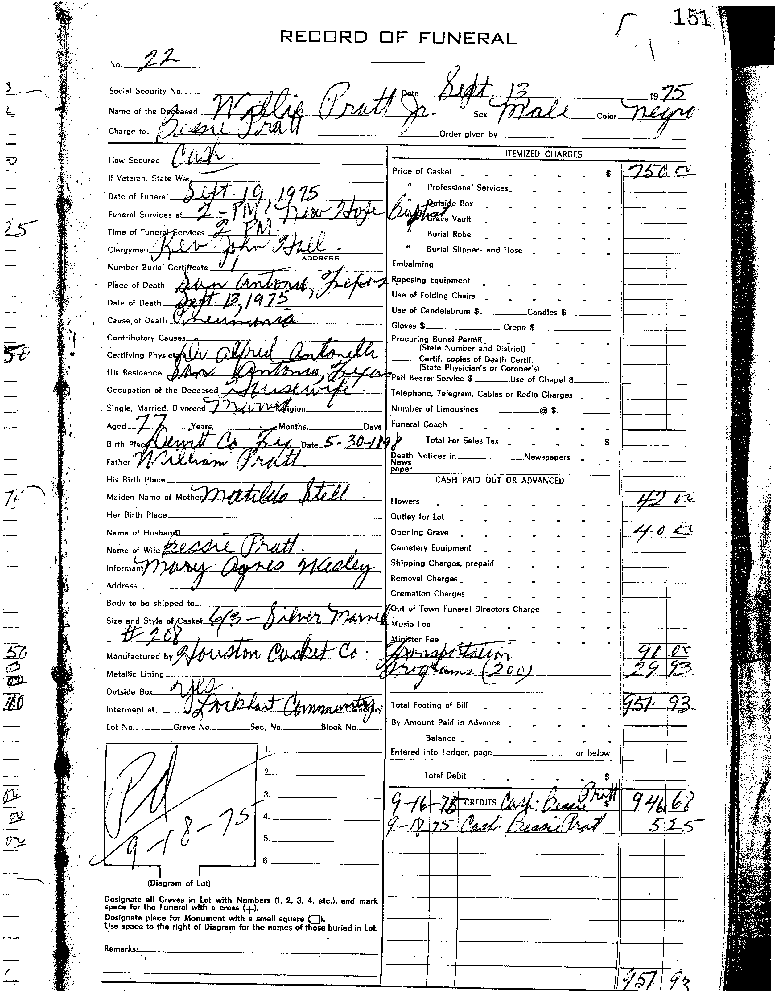 151
RECORD OF FUNERAL
No. 22
Social Security No. Date Sept. 13 1975
Name of the Deceased Wollie Pratt Jr. Sex Male Color Negro
Charge to. Bessie Pratt Order given by
How Secured Cash
If Veteran, State War
Date of Funeral Sept. 19, 1975
Funeral Services at 2 - PM. New Hope Baptist
Time of Funeral Services 2 PM
Clergyman Rev John Hall
ADDRESS
Number Burial Certificate
Place of Death San Antonio, Texas
Date of Death Sept 13, 1975
Cause of Death Pneumonia
Contributory Causes
Certifying Physician Dr Alfred Antonelli
His Residence San Antonio, Texas
Occupation of the Deceased Housewife
Single, Married, Divorced Married Religion
Aged 77 Years, Months, Days
Birth Place Dewitt Co Tex Date 5-30-1898
Father William Pratt
His Birth Place
Maiden Name of Mother Matilda Stell
Her Birth Place
Name of Husband
Name of Wife Bessie Pratt
Informant Mary Agnes Wesley
Address
Body to be shipped to
Size and Style of Casket 6/3 - Silver
# 208
Manufactured by Houston Casket Co.
Metallic Lining
Outside Box yes
Interment at Lockhart Community
Lot No. Grave No. Sec. No. Block No.
Pd
9-18-75
1.
2.
3.
4.
5.
6.
(Diagram of Lot)
Designate all Graves in Lot with Numbers (1, 2, 3, 4, etc.), and mark
space for the Funeral with a cross (+).
Designate place for Monument with a small square (▢).
Use space to the right of Diagram for the names of those buried in Lot.
Remarks:
ITEMIZED CHARGES
Price of Casket $ 750 00
" Professional Services
Outside Box
Grave Vault
Burial Robe
" Burial Slippers and Hose
Embalming
Opposing Equipment
Use of Folding Chairs
Use of Candelabrum $ Candles $
Gloves $ Crepe $
Procuring Burial Permit
(State Number and District)
Certif. copies of Death Certif.
(State Physician's or Coroner's)
Pall Bearer Service $ Use of Chapel $
Telephone, Telegram, Cables or Radio Charges
Number of Limousines @ $
Funeral Coach
Total For Sales Tax $
Death Notices in Newspapers
News
paper
CASH PAID OUT OR ADVANCED
Flowers 42 00
Outlay for Lot
Opening Grave 40 00
Cemetery Equipment
Shipping Charges, prepaid
Removal Charges
Cremation Charges
Out of Town Funeral Directors Charge
Music Fee
Minister Fee
Transportation 90 00
Programs (200) 29 93
Total Footing of Bill 951 93
By Amount Paid in Advance
Balance
Entered into Ledger, page or below
Total Debit $
9-16-75 CREDITS Cash: Bessie Pratt 946 68
9-18 75 Cash Bessie Pratt 5 25
951 93